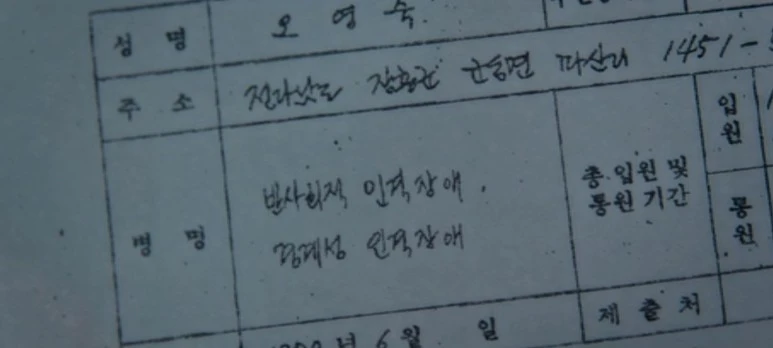 성 명 오 영 숙
주 소 전라남도 장흥군 군동면 파산리 1451-
병 명 반사회적 인격장애.
경계성 인격장애
총 입원 및
통원 기간
입원
통원
년 6 월 일
제 출 처